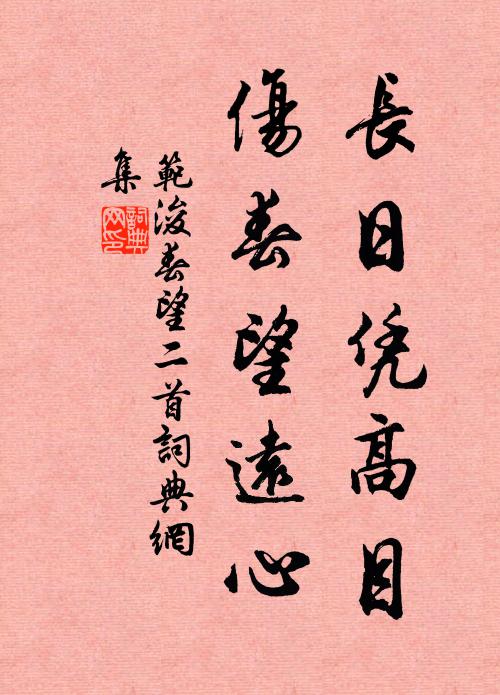 長日凭高目
傷春望遠心
範浚春望二首詞典網
集
詞典
网印